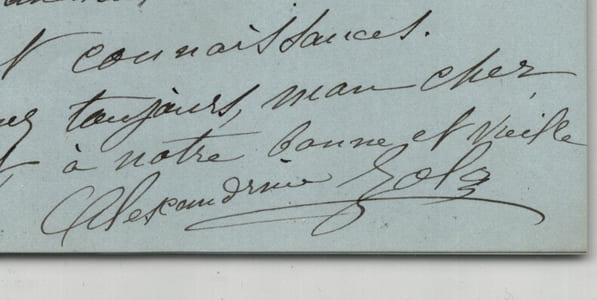 et connaissances.
toujours, mon cher
à notre bonne et vieille
Alexandrine Zola